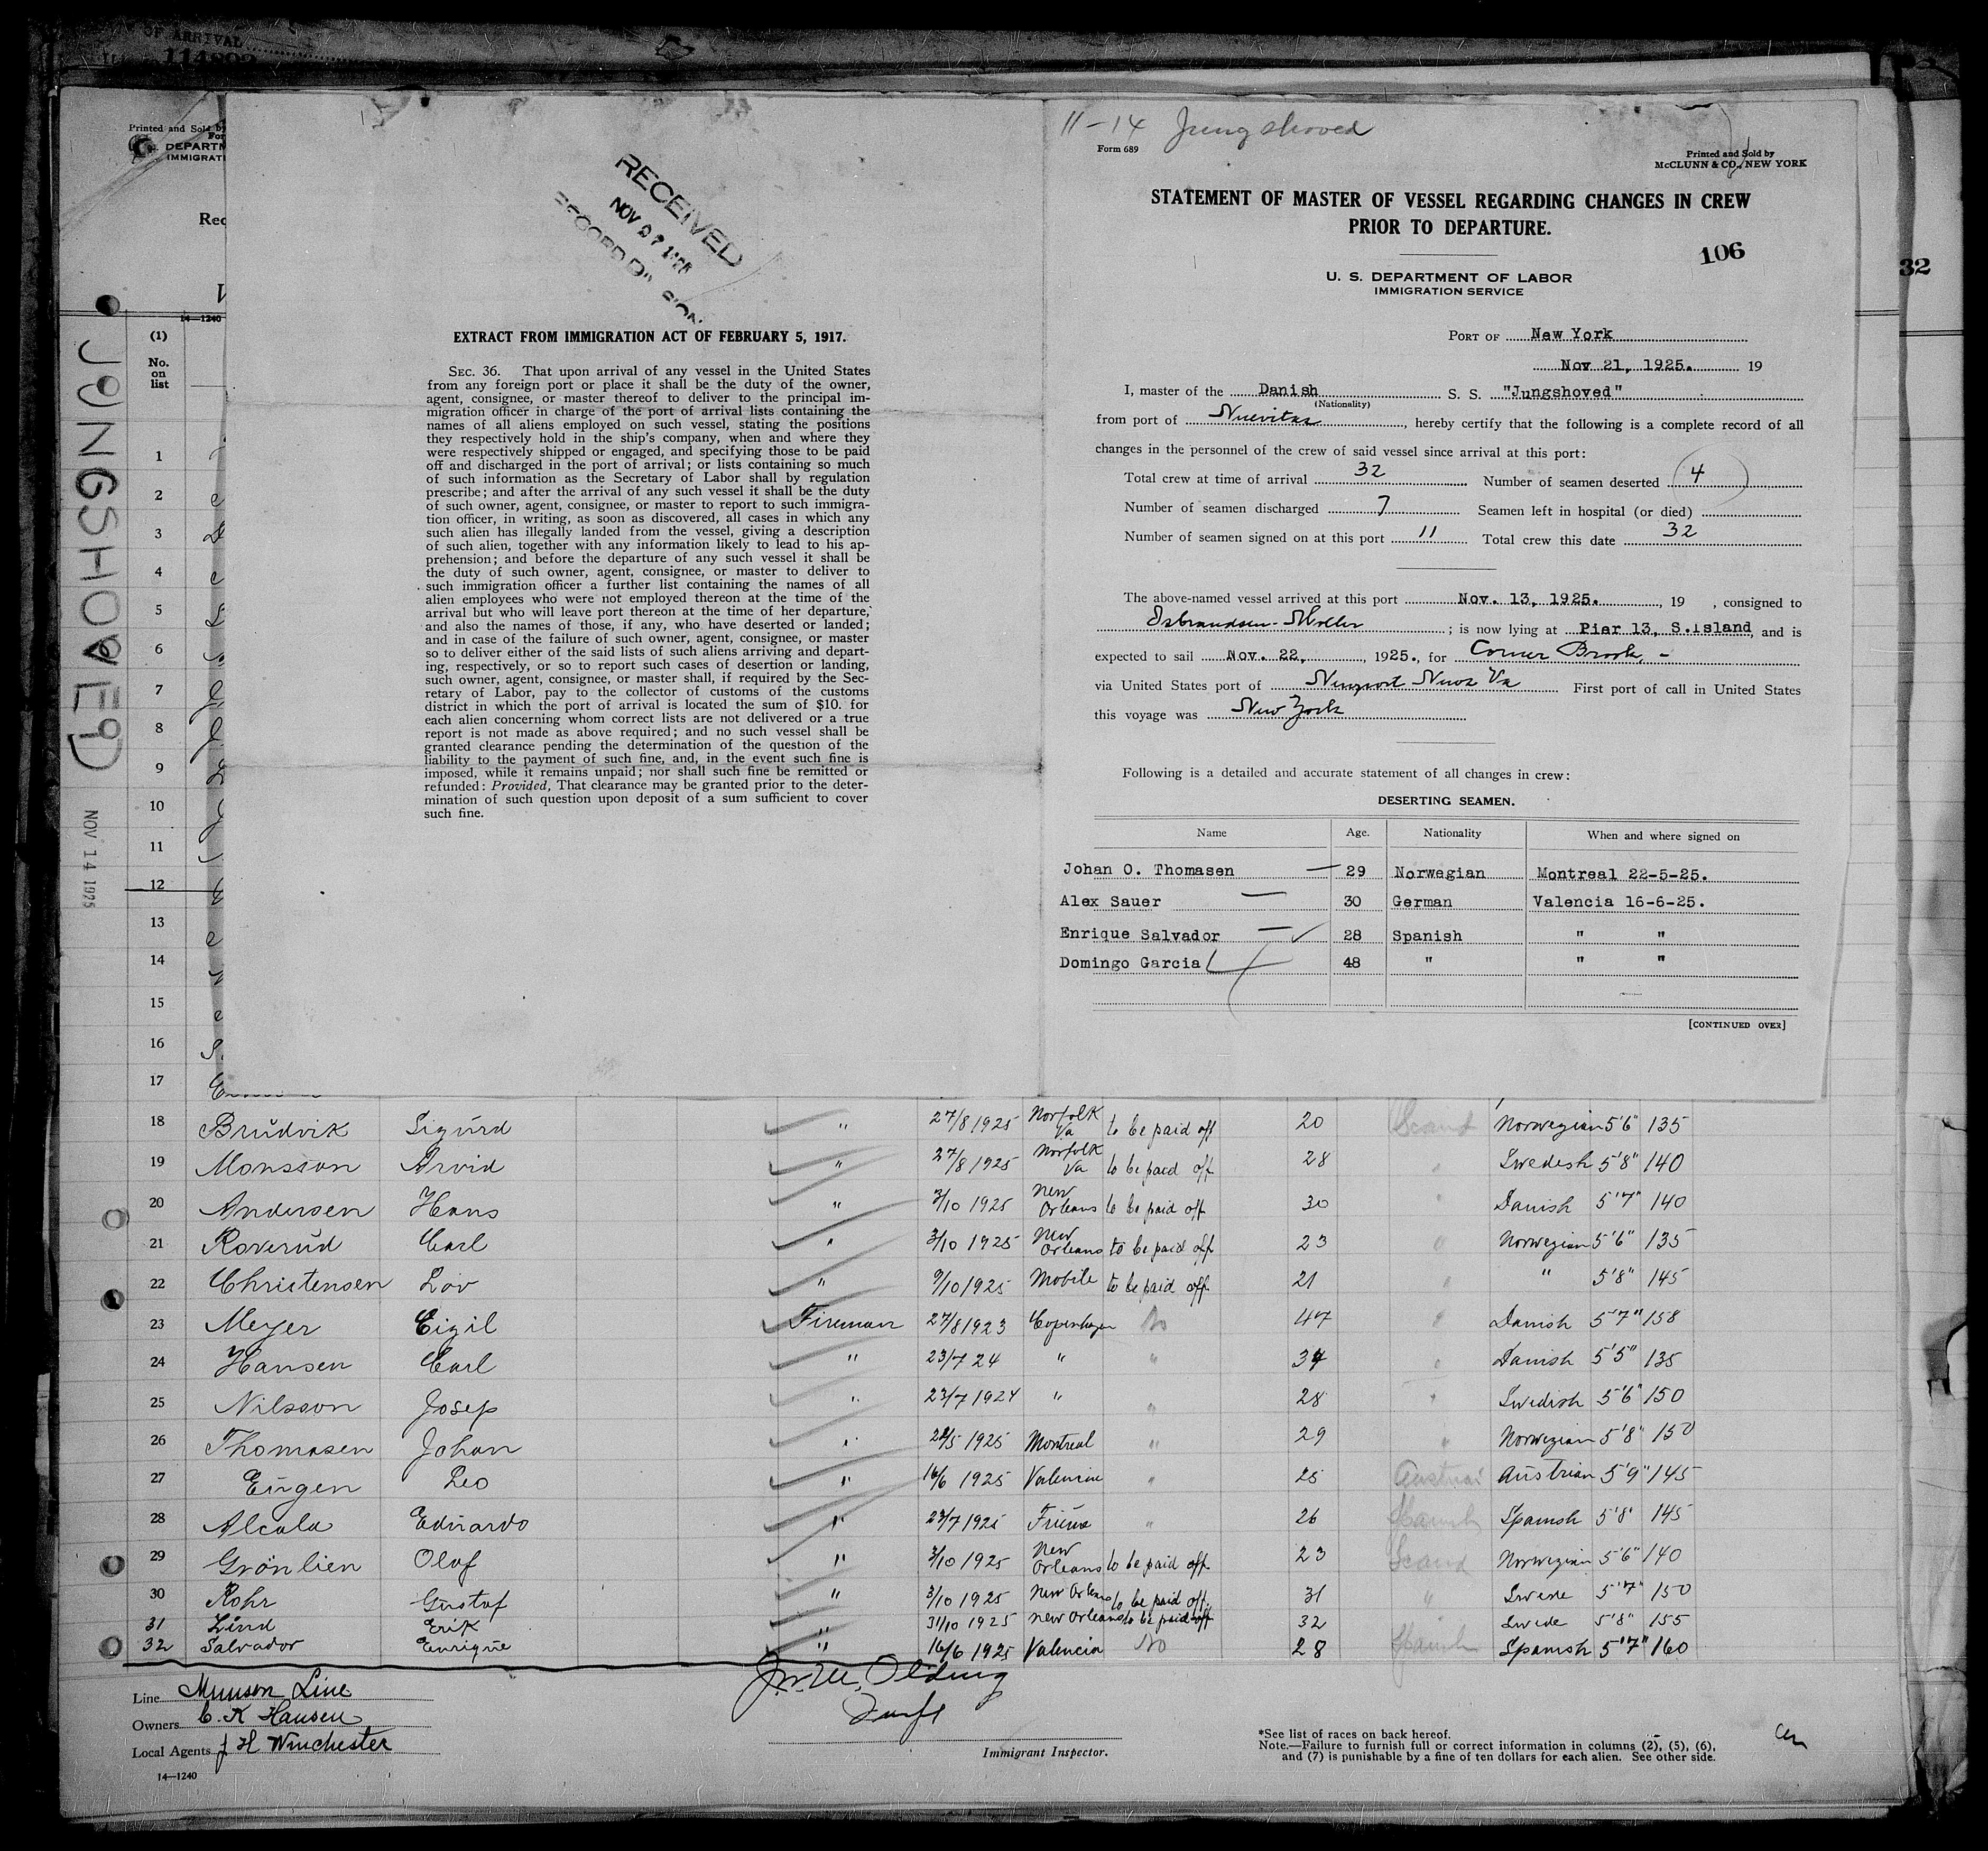 OF ARRIVAL
114802
Printed and Sold by
DEPARTM
IMMIGRATI
Rec
14—1240
(1)
No.
on
list
JUNGSHOVED
NOV 14 1925
1
2
3
4
5
6
7
8
9
10
11
12
13
14
15
16
17
32
RECEIVED
EXTRACT FROM IMMIGRATION ACT OF FEBRUARY 5, 1917.
SEC. 36. That upon arrival of any vessel in the United States
from any foreign port or place it shall be the duty of the owner,
agent, consignee, or master thereof to deliver to the principal im-
migration officer in charge of the port of arrival lists containing the
names of all aliens employed on such vessel, stating the positions
they respectively hold in the ship's company, when and where they
were respectively shipped or engaged, and specifying those to be paid
off and discharged in the port of arrival; or lists containing so much
of such information as the Secretary of Labor shall by regulation
prescribe; and after the arrival of any such vessel it shall be the duty
of such owner, agent, consignee, or master to report to such immigra-
tion officer, in writing, as soon as discovered, all cases in which any
such alien has illegally landed from the vessel, giving a description
of such alien, together with any information likely to lead to his ap-
prehension; and before the departure of any such vessel it shall be
the duty of such owner, agent, consignee, or master to deliver to
such immigration officer a further list containing the names of all
alien employees who were not employed thereon at the time of the
arrival but who will leave port thereon at the time of her departure,
and also the names of those, if any, who have deserted or landed;
and in case of the failure of such owner, agent, consignee, or master
so to deliver either of the said lists of such aliens arriving and depart-
ing, respectively, or so to report such cases of desertion or landing,
such owner, agent, consignee, or master shall, if required by the Sec-
retary of Labor, pay to the collector of customs of the customs
district in which the port of arrival is located the sum of $10. for
each alien concerning whom correct lists are not delivered or a true
report is not made as above required; and no such vessel shall be
granted clearance pending the determination of the question of the
liability to the payment of such fine, and, in the event such fine is
imposed, while it remains unpaid; nor shall such fine be remitted or
refunded: Provided, That clearance may be granted prior to the deter-
mination of such question upon deposit of a sum sufficient to cover
such fine.
11-14 Jungshoved
Form 689
Printed and Sold by
McCLUNN & CO., NEW YORK
STATEMENT OF MASTER OF VESSEL REGARDING CHANGES IN CREW
PRIOR TO DEPARTURE.
106
U. S. DEPARTMENT OF LABOR
IMMIGRATION SERVICE
PORT OF New York
Nov 21, 1925. 19
I, master of the Danish S. S. "Jungshoved"
(Nationality)
from port of Nuevitas, hereby certify that the following is a complete record of all
changes in the personnel of the crew of said vessel since arrival at this port:
Total crew at time of arrival 32 Number of seamen deserted 4
Number of seamen discharged 7 Seamen left in hospital (or died)
Number of seamen signed on at this port 11 Total crew this date 32
The above-named vessel arrived at this port Nov. 13, 1925. , 19 , consigned to
Isbrandsen-Moller ; is now lying at Pier 13, S.Island, and is
expected to sail Nov. 22, , 1925., for Corner Brook, -
via United States port of Newport News Va First port of call in United States
this voyage was New York
Following is a detailed and accurate statement of all changes in crew:
DESERTING SEAMEN.
Name Age. Nationality When and where signed on
Johan O. Thomasen — 29 Norwegian Montreal 22-5-25.
Alex Sauer — 30 German Valencia 16-6-25.
Enrique Salvador — 28 Spanish " "
Domingo Garcia 48 " " "
[CONTINUED OVER]
18 Brudvik Sigurd " 27/8 1925 Norfolk Va to be paid off 20 Scand Norwegian 5'6" 135
19 Monsson Arvid " 27/8 1925 Norfolk Va to be paid off 28 " Swedish 5'8" 140
20 Andersen Hans " 3/10 1925 New Orleans to be paid off 30 " Danish 5'7" 140
21 Roverud Carl " 3/10 1925 New Orleans to be paid off 23 " Norwegian 5'6" 135
22 Christensen Lov " 9/10 1925 Mobile to be paid off 21 " " 5'8" 145
23 Meyer Eigil Fireman 27/8 1923 Copenhagen No 47 " Danish 5'7" 158
24 Hansen Carl " 23/7 24 " " 34 " Danish 5'5" 135
25 Nilsson Josep " 23/7 1924 " " 28 " Swedish 5'6" 150
26 Thomasen Johan " 22/5 1925 Montreal " 29 " Norwegian 5'8" 150
27 Eugen Leo " 16/6 1925 Valencia " 25 Austrian 5'9" 145
28 Alcala Eduardo " 23/7 1925 Fiume " 26 Spanish Spanish 5'8" 145
29 Grönlien Olof " 3/10 1925 New Orleans to be paid off 23 Scand Norwegian 5'6" 140
30 Rohr Gustof " 3/10 1925 New Orleans to be paid off. 31 " Swede 5'7" 150
31 Lind Erik " 31/10 1925 New Orleans to be paid off 32 Swede 5'8" 155
32 Salvador Enrique " 16/6 1925 Valencia No 28 Spanish Spanish 5'7" 160
Line Munson Line
Owners C. K Hansen
Local Agents J H Winchester
14—1240
Olding
Immigrant Inspector.
*See list of races on back hereof.
Note.—Failure to furnish full or correct information in columns (2), (5), (6),
and (7) is punishable by a fine of ten dollars for each alien. See other side.